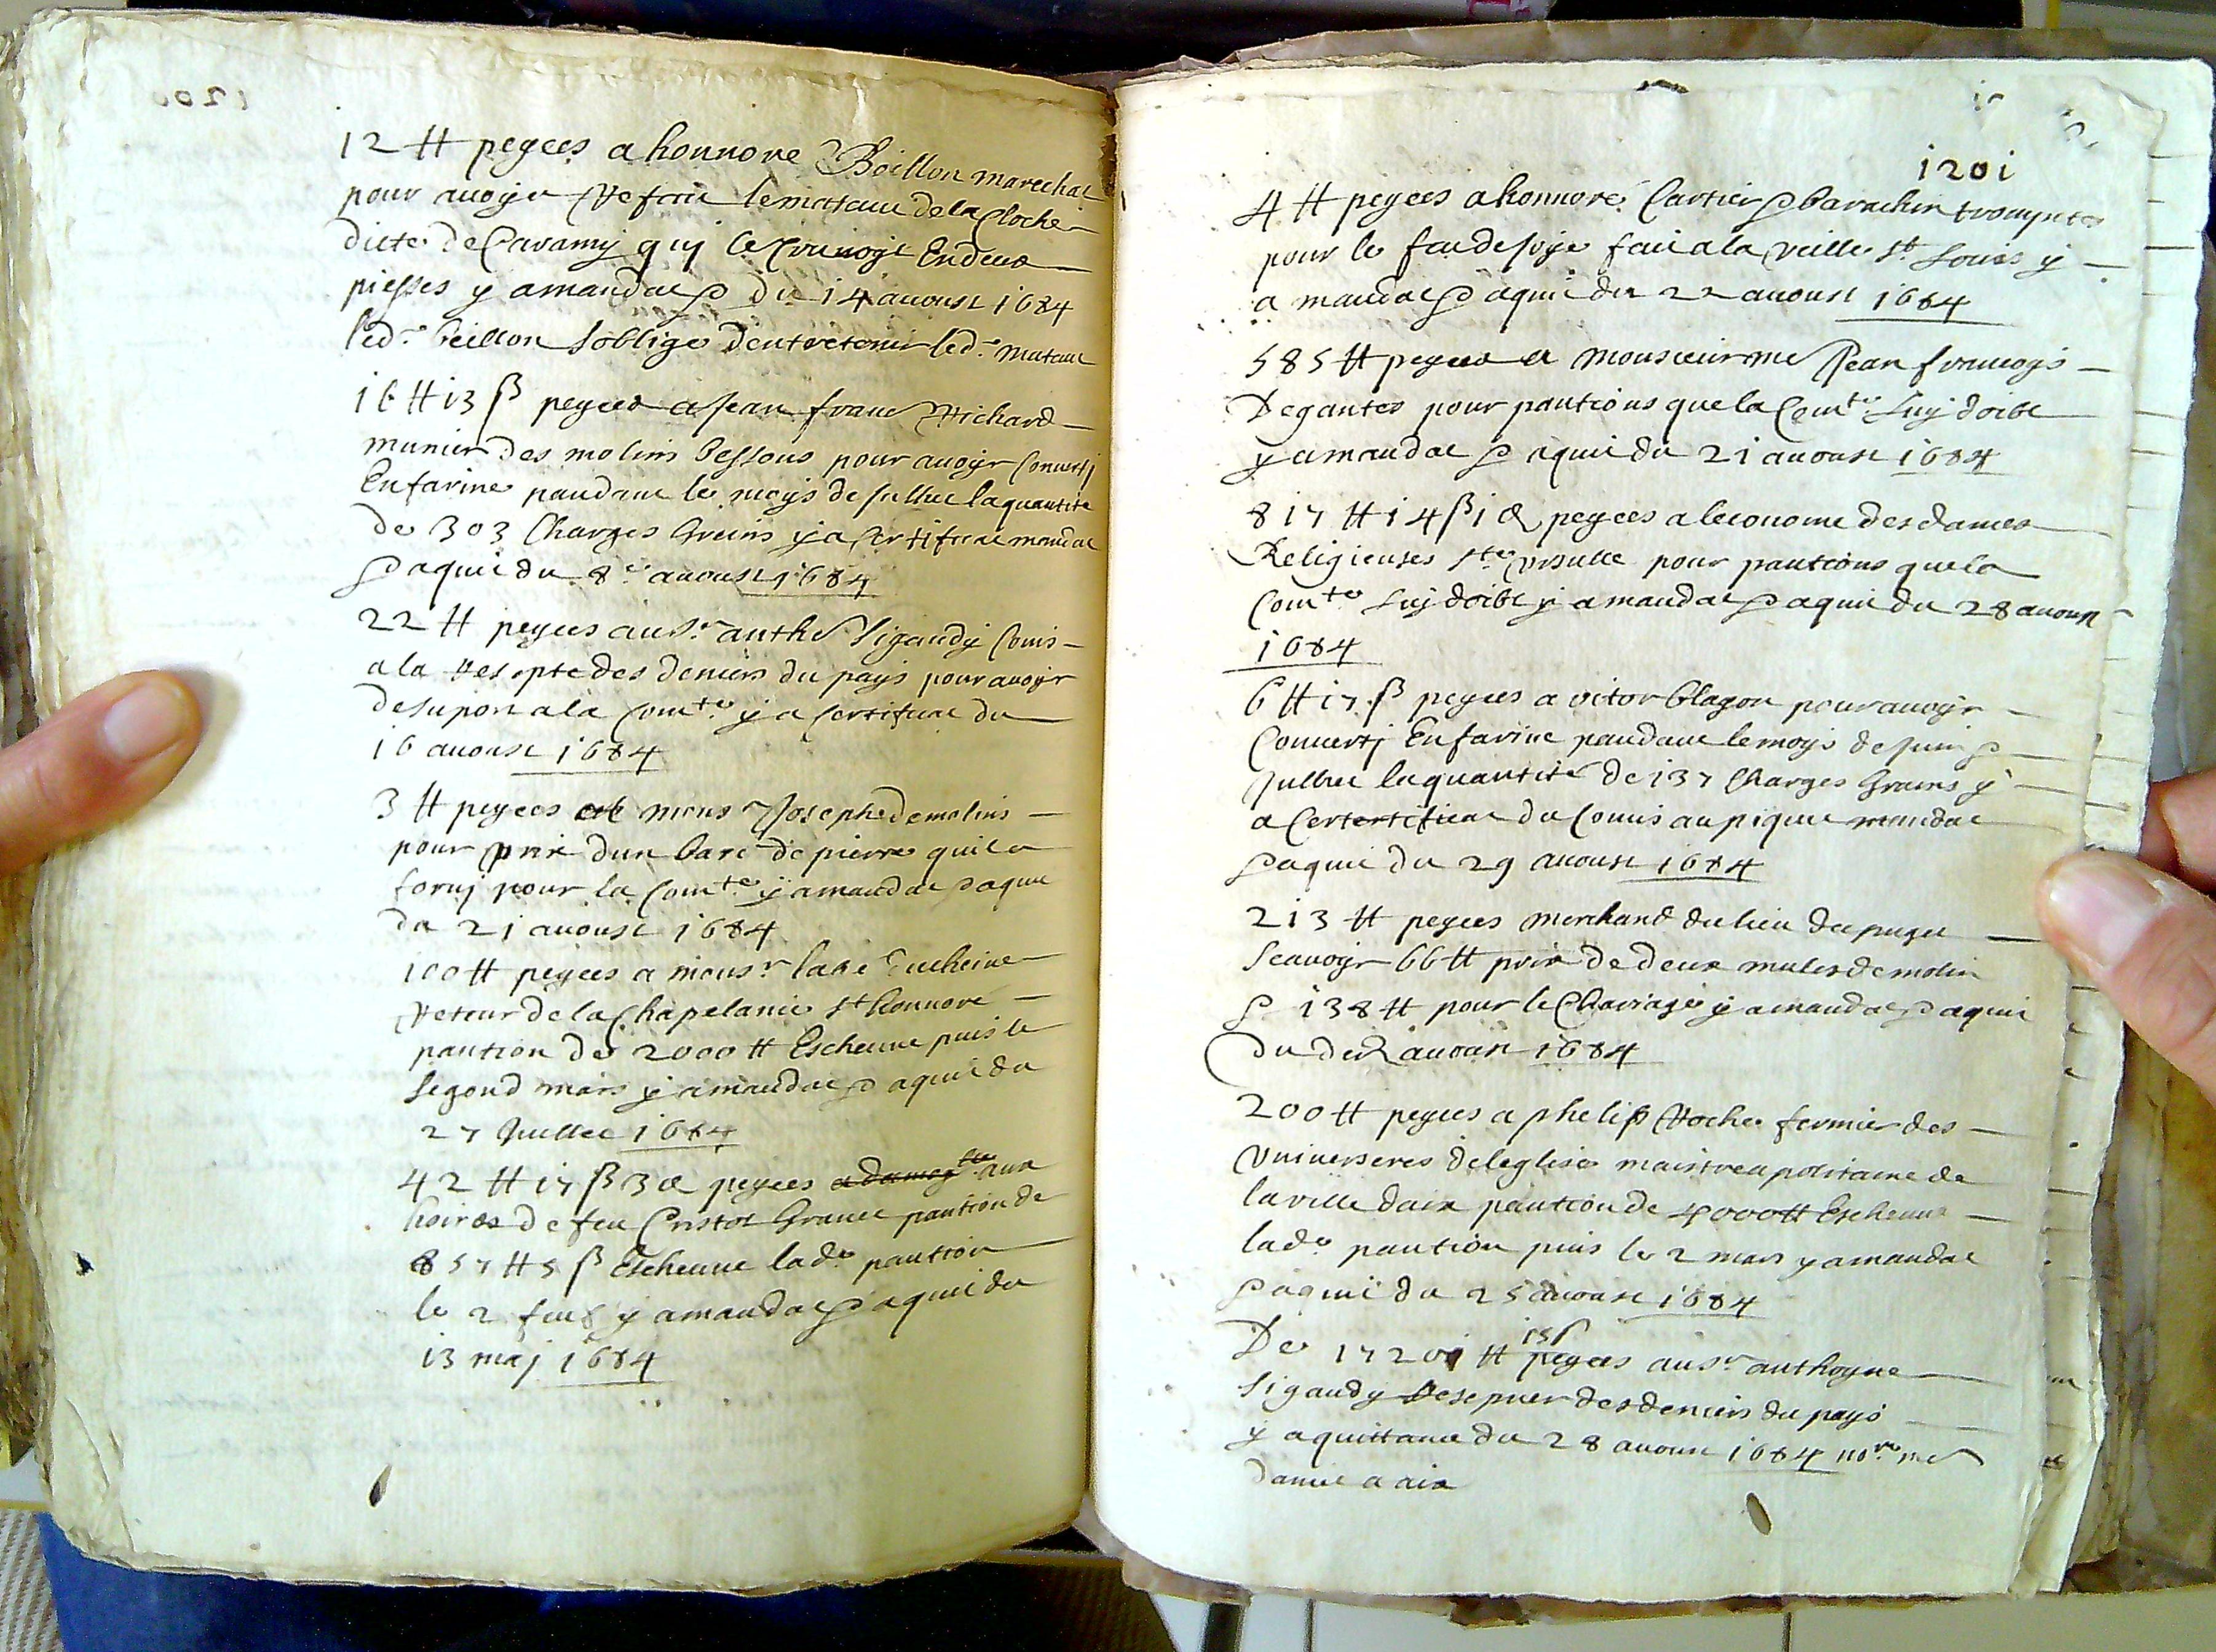 12 ₶ peyees a honnore Beillon marechal
pour avoyer refaic le mataut de la Cloche
dicte de Caramy quj
piesses y a mandat & du 14 avoust 1684
led.t beillon soblige dentretenir led.t mataut
16 ₶ 13 ß peyees a jean franc Richard
munier des molins bessons pour avoyr Convertj
En farine pandant le moys de jullet la quantite
de 303 Charges Greins y a Certifficat mandat
& aquit du 8e avoust 1684
22 ₶ peyees au Sr anthe Sigaudy Comis
a la resepte des deniers du pays pour avoyr
a la Comte y a Certificat du
16 avoust 1684
3 ₶ peyees a mons r Joseph demolins
pour prix dun bare de pierre quil a
fornj pour la Comte y a mandat & aquit
du 21 avoust 1684
100 ₶ peyees a mons.r labe
Reteur de la Chapelanie st honnore
pantion de 2000 ₶ Escheuue puis le
segond mars y a mandat & aquit du
27 Juillet 1684
42 ₶ 17 ß 3 d peyees aux
hoires de feu Cristol Granet pantion de
857 ₶ 5 ß Escheuue lade pantion
le 2 feur y a mandat & aquit du
13 maj 1684
1201
4 ₶ peyees a honnore Cartier & barachin trompetes
pour le feu de joye faic a la veille st Louis y
a mandat & aquit du 22 avoust 1684
585 ₶ peyees a Monsieur me Jean francoys
Degantes pour pantions que la Comte Luy doibt
y a mandat & aquit du 21 avoust 1684
817 ₶ 14 ß 1 d peyees a leconome des dames
Religieuses ste Ursulle pour pantions que la
Comte Luj doibt y a mandat & aquit du 28 avoust
1684
6 ₶ 17 ß peyees a vitor blagon pour avoyr
Convertj En farine pandant le moys de juin &
Jullet la quantite de 137 Charges Grains y
a Certertificat du Comis au piquet mandat
& aquit du 29 avoust 1684
213 ₶ peyees merchand du lieu du puget
scavoyr 66 ₶ prix de deux mules de molin
& 138 ₶ pour le Charriage y a mandat & aquit
du avoust 1684
200 ₶ peyees a phelip Roche fermier des
Universeres de leglise maistreu politaine de
la ville daix pantion de 4000 ₶ Escheuue
lade pantion puis le 2 mars y a mandat
& aquit du 25 avoust 1684
15 ſ
De 17201 ₶ peyees au sr anthoyne
Sigaudy Resepuer des deniers du pays
y a quittance du 28 avoust 1684 nore me
a aix